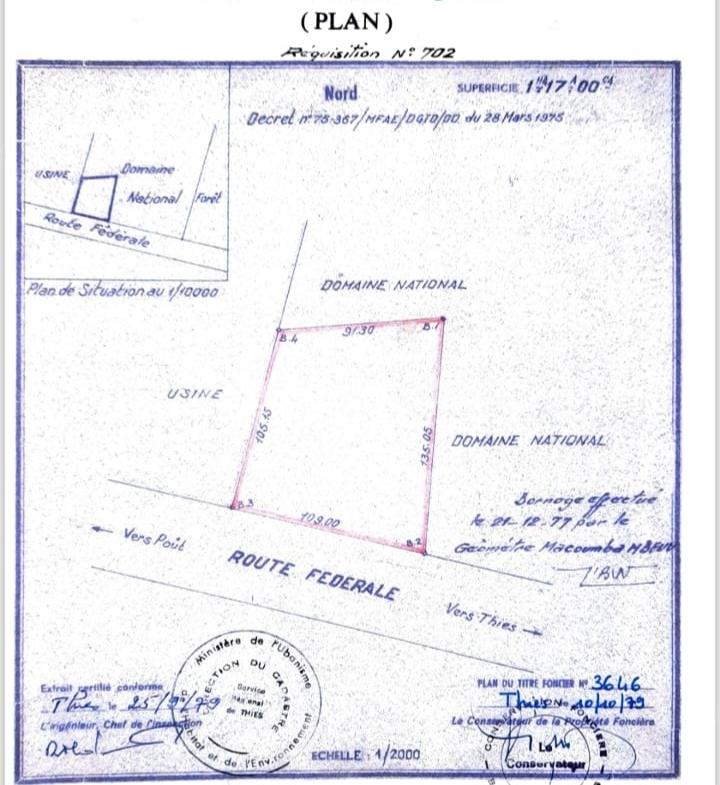 ( PLAN )
Réquisition N° 702
Nord
SUPERFICIE 1HA17A00CA
Decret n°75-367/MFAE/DGTD/DD. du 28 Mars 1975
USINE
Domaine
National
Forêt
Route Fédérale
Plan de Situation au 1/10000
DOMAINE NATIONAL
B.4
91.30
B.1
USINE
105.15
135.05
DOMAINE NATIONAL
B.3
109.00
B.2
Bornage effectué
le 21-12-77 par le
Géomètre Macoumba
Vers Poût
ROUTE FEDERALE
Vers Thies
Ministère de l'Urbanisme
de l'Environnement
DIRECTION DU CADASTRE
Service
Régional
de THIES
Extrait certifié conforme
Thies le 25/9/79
L'ingénieur, Chef de l'inspection
PLAN DU TITRE FONCIER N° 3646
Thies le 10/10/79
Le Conservateur de la Propriété Foncière
Le
Conservateur
ECHELLE : 1/2000